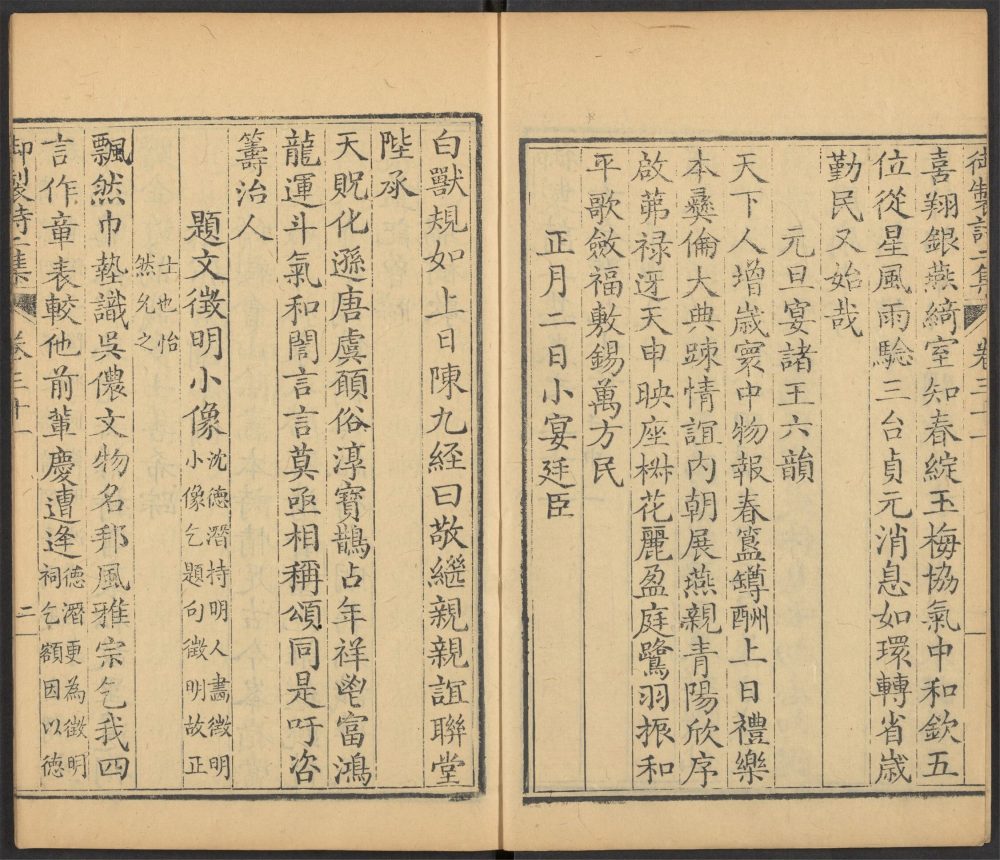 御製詩二集 卷三十一
喜翔銀燕綺室知春綻玉梅協氣中和欽五
位從星風雨驗三台貞元消息如環轉省歲
勤民又始哉
元旦宴諸王六韻
天下人增歲寰中物報春簋罇酬上日禮樂
本彝倫大典踈情誼內朝展燕親青陽欣序
啟茀祿迓天申映座桝花麗盈庭鷺羽振和
平歌斂福敷錫萬方民
正月二日小宴廷臣
白獸規如上日陳九經曰敬繼親親誼聯堂
陛承
天貺化遜唐虞頋俗淳寶鵲占年祥鬯富鴻
龍運斗氣和誾言言莫亟相稱頌同是吁咨
籌治人
題文徵明小像沈德潛持明人畵徵明
小像乞題句徵明故正
士也怡
然允之
飄然巾墊識吳儂文物名邦風雅宗乞我四
言作章表較他前輩慶遭逢德潛更為徵明
祠乞額因以德
御製詩二集 卷三十一 二